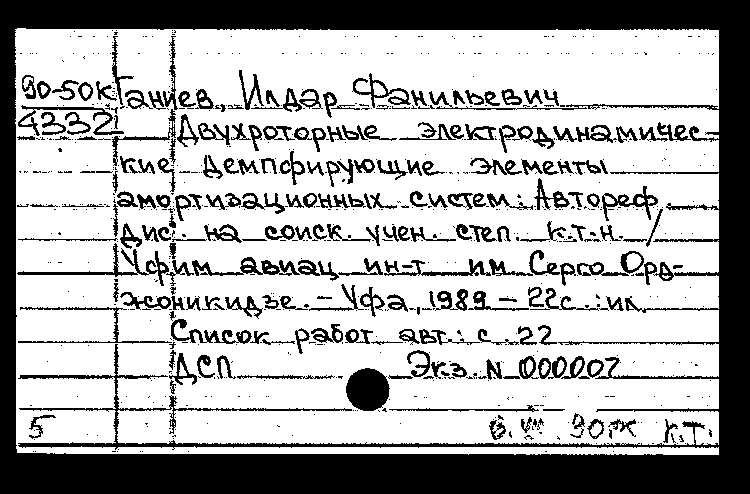 90-50к Ганиев, Илдар Фанильевич
4332 Двухроторные электродинамичес-
кие демпфирующие элементы
амортизационных систем: Автореф.
дис. на соиск. учен. степ. к.т.н. /
Уфим авиац ин-т им Серго Орд-
жоникидзе. - Уфа, 1989 - 22с.: ил.
Список работ авт.: с. 22
ДСП Экз. N 000007
5 6. VIII. 90гк К.Т.